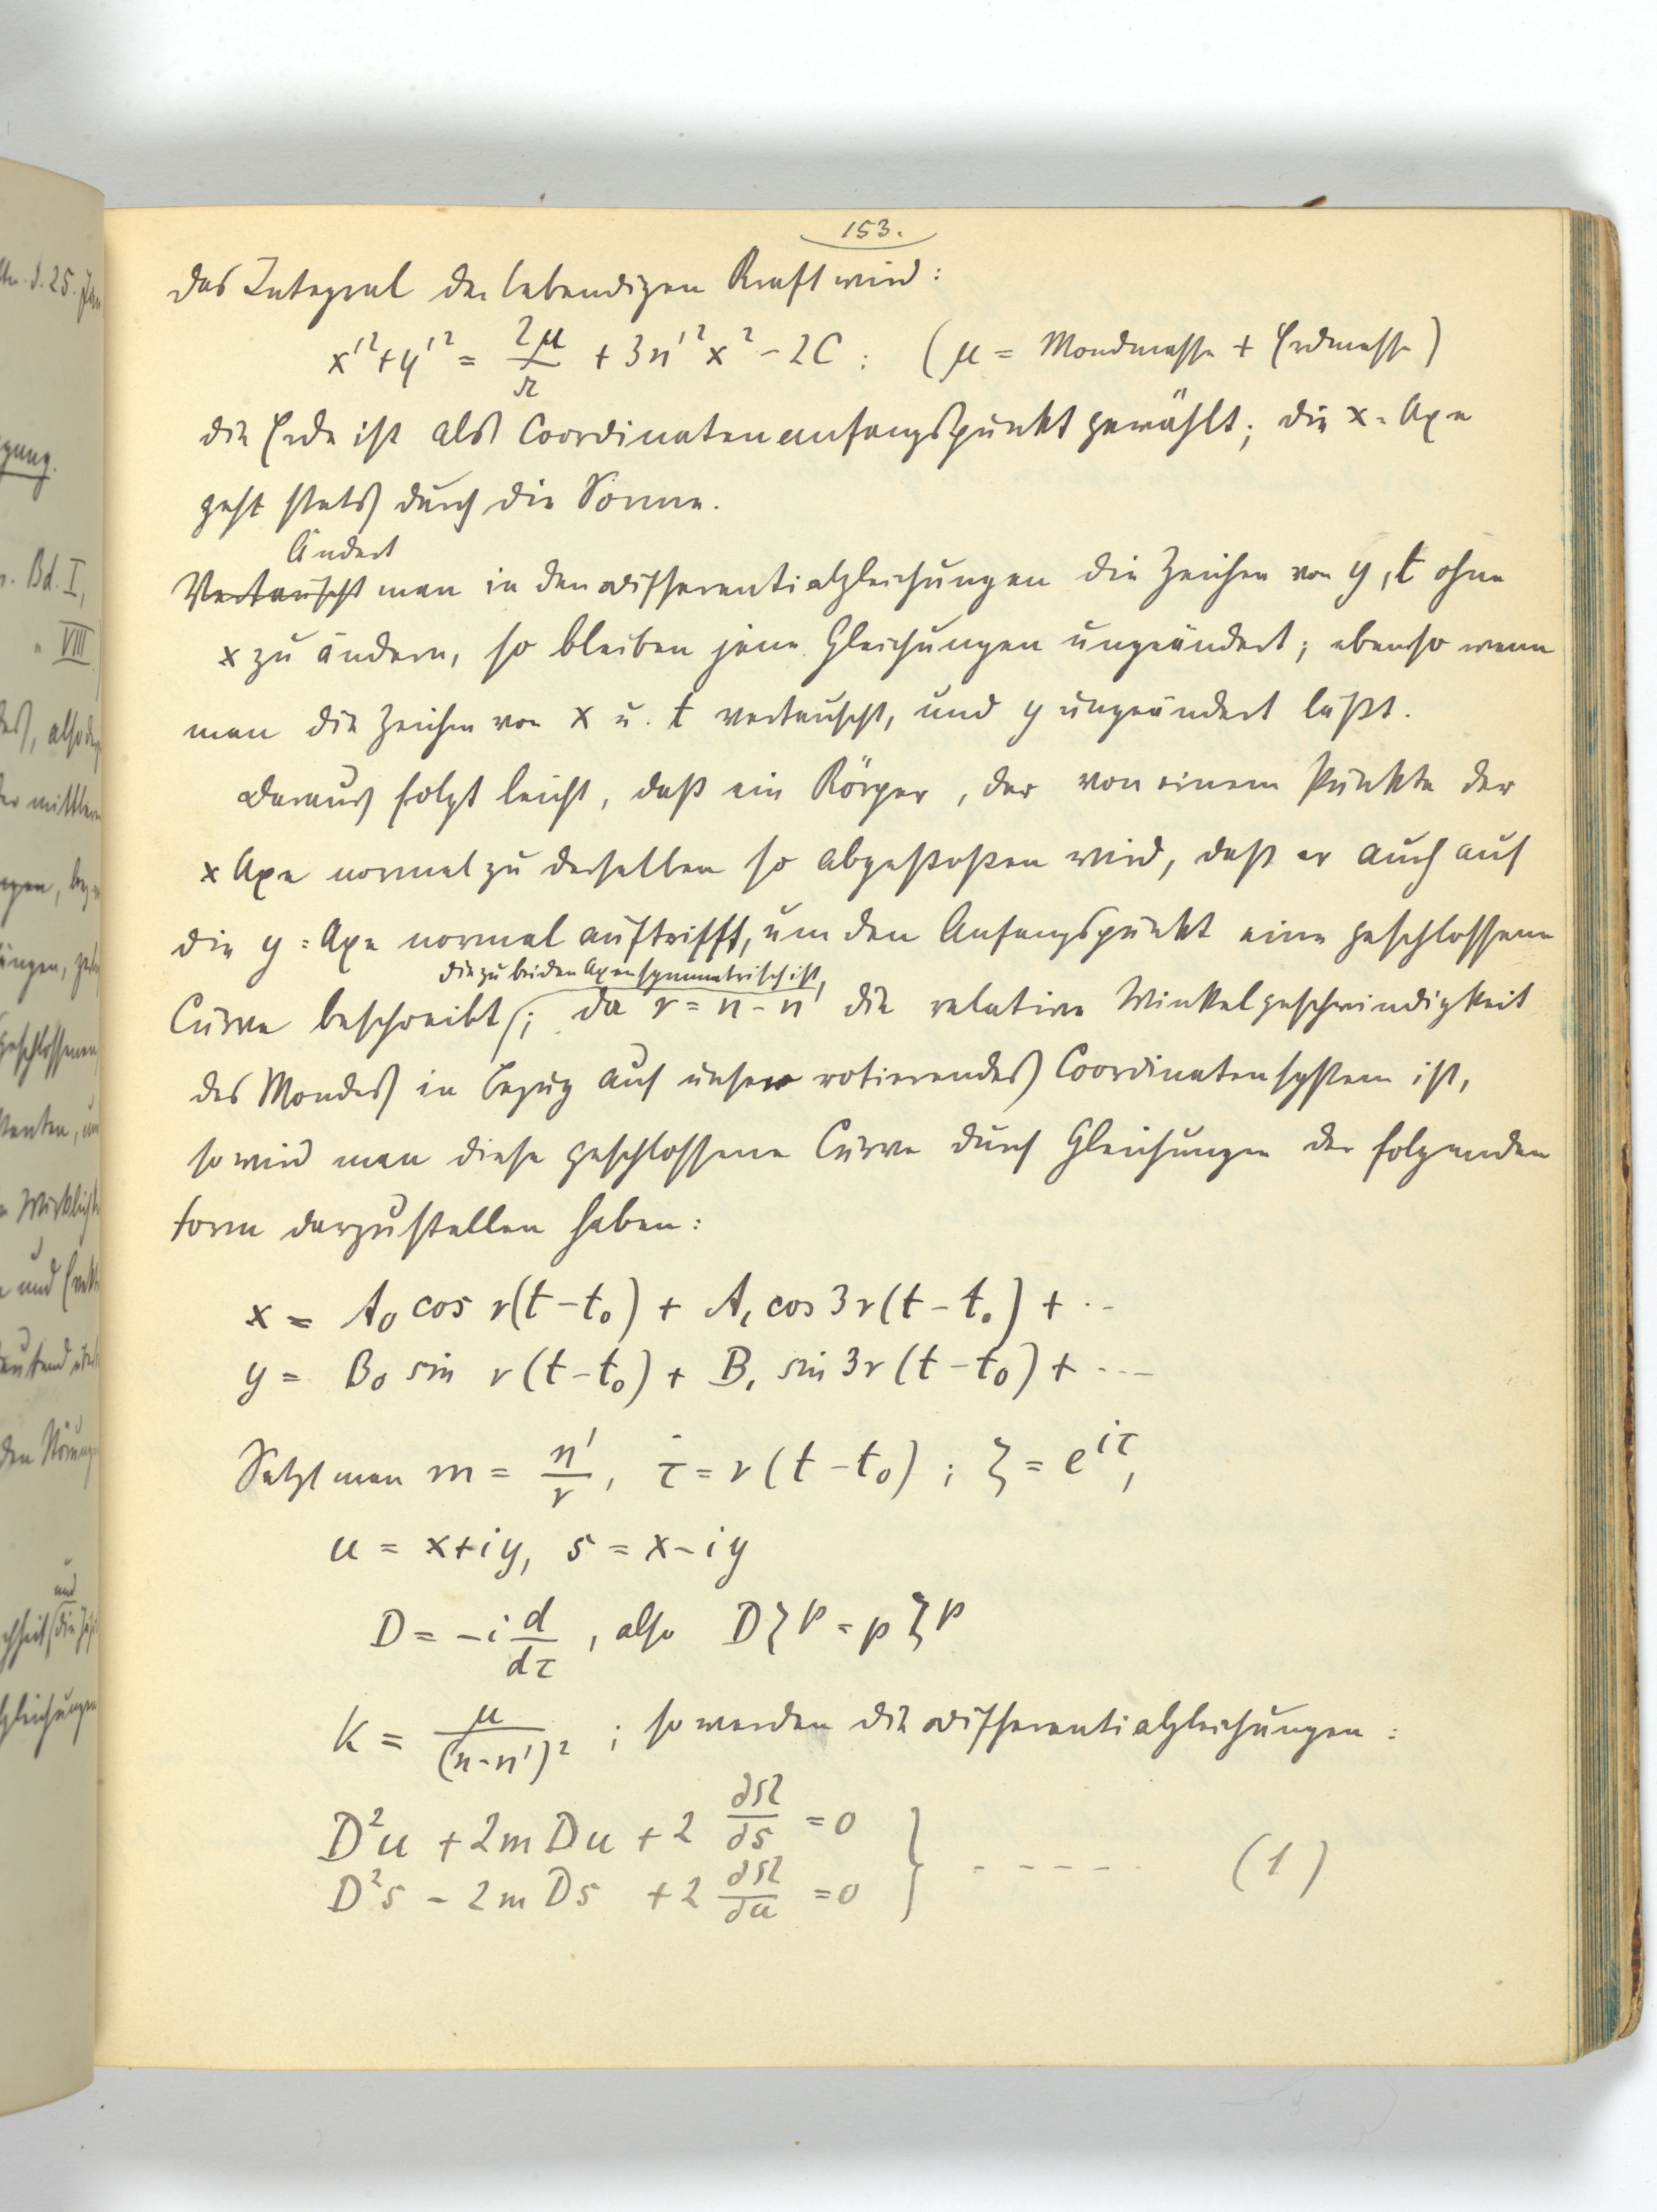 153.
das Integral der lebendigen Kraft wird:
x'² + y'² = 2μ/r + 3n'²x² - 2C; (μ = Mondmasse + Erdmasse)
die Erde ist als Coordinatenanfangspunkt gewählt; die x-Axe
geht stets durch die Sonne.
Ändert
Vertauscht man in den Differentialgleichungen die Zeichen von y, t ohne
x zu ändern, so bleiben jene Gleichungen ungeändert; ebenso wenn
man die Zeichen von x u. t vertauscht, und y ungeändert läßt.
Daraus folgt leicht, daß ein Körper, der von einem Punkte der
x Axe normal zu derselben so abgestoßen wird, daß er auch auf
die y=Axe normal auftrifft, um den Anfangspunkt eine geschlossene
die zu beiden Axen symmetrisch ist,
Curve beschreibt; da ν = n - n' die relative Winkelgeschwindigkeit
des Mondes in bezug auf unser rotierendes Coordinatensystem ist,
so wird man diese geschlossene Curve durch Gleichungen der folgenden
Form darzustellen haben:
x = A₀ cos ν(t - t₀) + A₁ cos 3ν(t - t₀) + ...
y = B₀ sin ν(t - t₀) + B₁ sin 3ν(t - t₀) + ...
Setzt man m = n'/ν, τ = ν(t - t₀); ζ = e^{iτ},
u = x + iy, s = x - iy
D = -i d/dτ, also Dζ^p = pζ^p
K = μ/(n-n')²; so werden die Differentialgleichungen:
D²u + 2m Du + 2 ∂Ω/∂s = 0
D²s - 2m Ds + 2 ∂Ω/∂u = 0 } - - - - - (1)